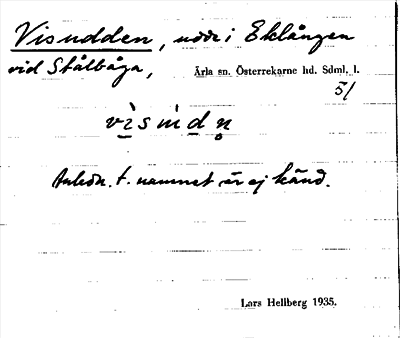 Visudden, udde i Eklången
vid Stålbåga,
Ärla sn. Österrekarne hd. Sdml. l.
51
Anledn. t. namnet är ej känd.
Lars Hellberg 1935.